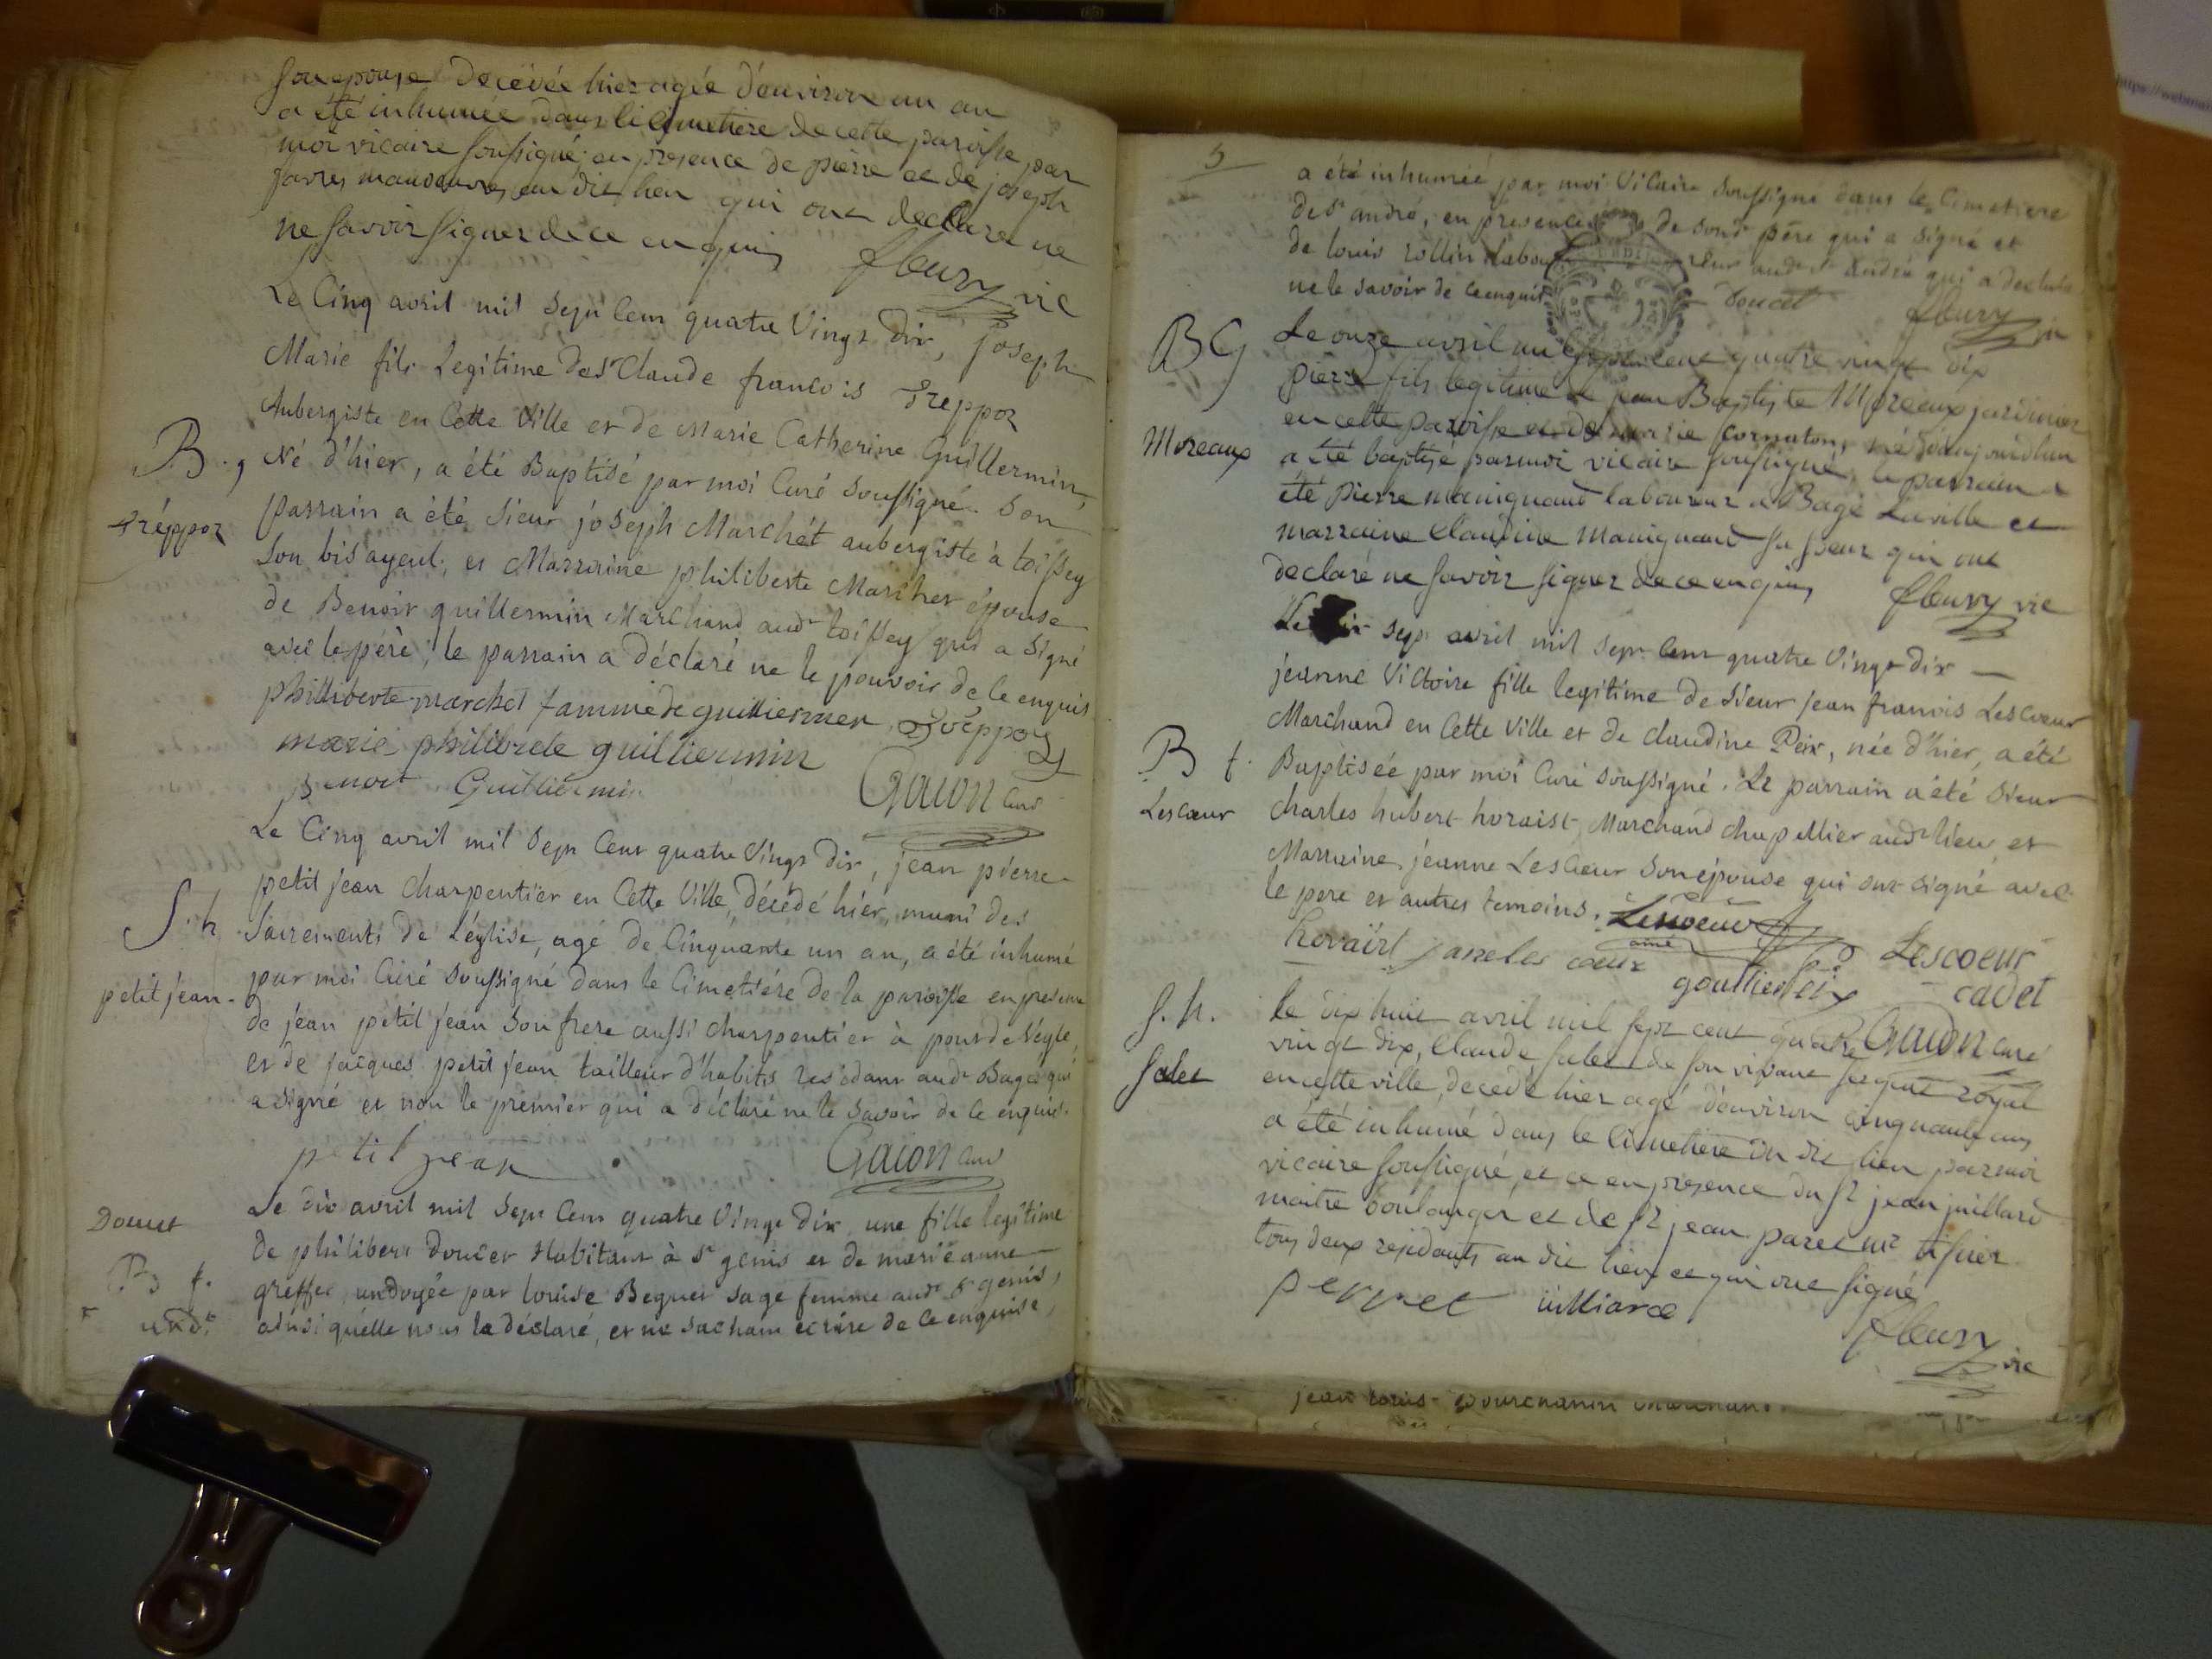 son epouse decedée hier agée d'environ un an
a été inhumée dans le cimetiere de cette paroisse par
moi vicaire soussigné en presence de pierre et de joseph
favres manœuvres au dit lieu qui ont declaré ne
ne savoir signer de ce enquis fleury vic
Le Cinq avril mil sept Cent quatre Vingt dix, joseph
Marie fils Legitime de sr Claude francois Treppoz
Aubergiste en Cette Ville et de Marie Catherine Guillermin,
B. g Né d'hier, a été Baptisé par moi Curé soussigné. Son
Tréppoz parrain a été Sieur joseph Marchét aubergiste à toissey
son bisayeul, et Marraine philiberte Marchet épouse
de Benoit guillermin Marchand audt toissey qui a signé
avec le pére; le parrain a déclaré ne le pouvoir de Ce enquis
philliberte marchet famme de guilliermen Treppoz
marie philiberte guilliermin
Benoit Guilliermin Gacon Curé
Le Cinq avril mil Sept Cent quatre Vingt dix, jean pierre
petit jean Charpentier en Cette Ville, décédé hier, muni des
S. h. Sacrements de L'église, agé de Cinquante un an, a été inhumé
petit jean. par moi Curé Soussigné dans le Cimetiére de la paroisse en presence
de jean petit jean Son frere aussi Charpentier à pont de Veyle,
et de jacques petit jean tailleur d'habits residant audt Bagé qui
a signé et non le premier qui a déclaré ne le Savoir de Ce enquis.
petit jean Gacon Curé
Doucet Le dix avril mil Sept Cent quatre Vingt dix une fille legitime
de philibert doucet Habitant à st genis et de marie anne
B f. greffet, undoyée par louise Beguet sage femme audt st genis,
und. ainsi quélle nous la déclaré, et ne sachant écrire de Ce enquise,
5
a été inhumée par moi Vicaire Soussigné dans le Cimetiere
de st andré, en presence de sondt pére qui a signé et
de louis rollin Laboureur audt st André qui a declaré
ne le savoir de Ce enquis doucet fleury vic
B G Le onze avril mil sept cent quatre vingt dix
pierre fils legitime de jean Baptiste Moreaux jardinier
en cette paroisse et de marie Cornaton, né d'aujourdhui
Moreaux a été baptisé par moi vicaire soussigné, le parrain a
été Pierre manignand laboureur a Bagé La ville et
marraine Claudine manignand sa sœur qui ont
declaré ne savoir signer de ce enquis fleury vic
Le dix sept avril mil sept Cent quatre Vingt dix —
jeanne Victoire fille legitime de Sieur jean francois Lescoeur
Marchand en Cette Ville et de claudine Peix, née d'hier, a été
B f. Baptisée par moi Curé soussigné. Le parrain a été Sieur
Lescœur Charles hubert horaist Marchand chapellier audt lieu, et
Marraine jeanne Lescœur son épouse qui ont signé avec
le pere et autres temoins. Lescoeur
ainé
horaist janne les coeur Lescoeur
goullier peix cadet
S. h. le dix huit avril mil sept cent quatre Gacon curé
vingt dix, Claude Salet de son vivant sergent royal
Salet en cette ville, decedé hier agé d'environ cinquante ans
a été inhumé dans le Cimetiere du dit lieu par moi
vicaire soussigné, et ce en presence du sr jean juillard
maitre boulanger et de sr jean paret mr tissier
tous deux residants au dit lieu et qui ont signé
perret uilliard
fleury vic
jean louis